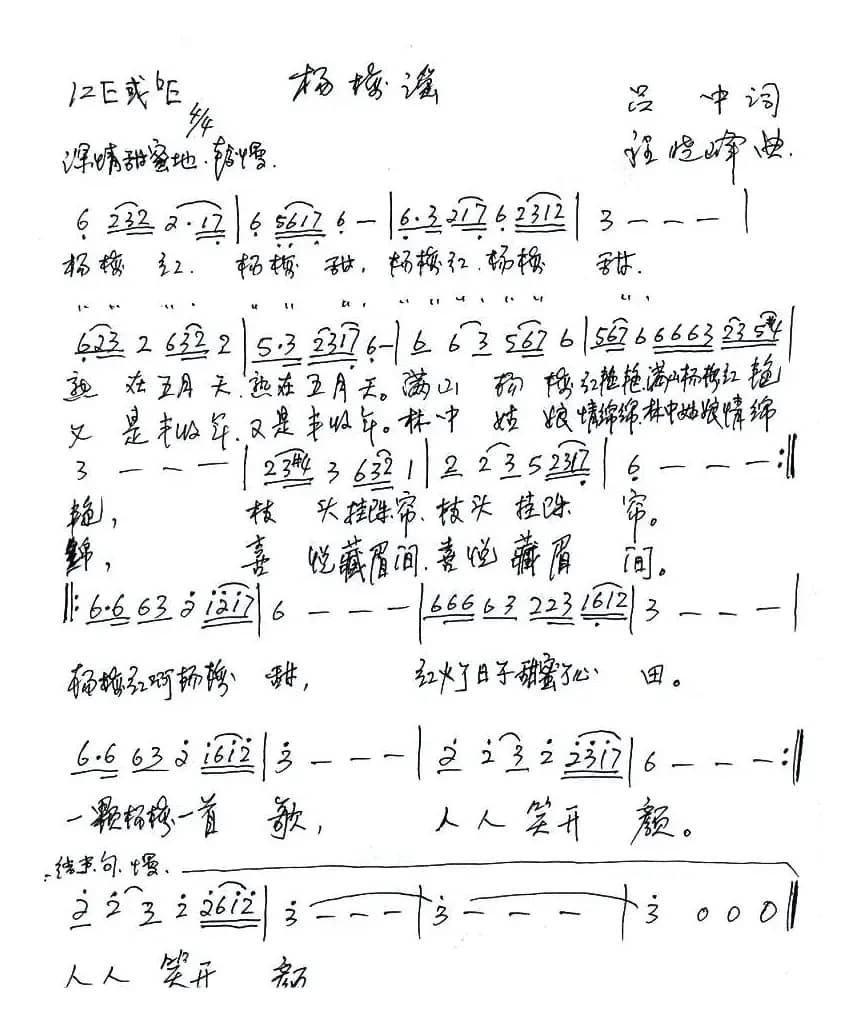 杨梅谣
1=E或bE 4/4
吕中词
深情甜蜜地.较慢.
程晓峰曲.
6 232 2·17 | 6 5617 6 — | 6·3 217 6 2312 | 3 — — — |
杨梅红.杨梅甜,杨梅红.杨梅甜.
〃 〃 〃 〃 〃 〃 〃 〃 〃 〃
623 2 632 2 | 5·3 2317 6 — | 6 6 3 567 6 | 567 6 6663 235#4 |
熟在五月天.熟在五月天。满山杨梅红艳艳.满山杨梅红艳
又是丰收年.又是丰收年。林中姑娘情绵绵.林中姑娘情绵
3 — — — | 23#4 3 632 1 | 2 2 3 5 2317 | 6 — — — :‖
艳,枝头挂珠帘.枝头挂珠帘。
绵,喜悦藏眉间.喜悦藏眉间。
‖: 6·6 63 2 1217 | 6 — — — | 666 63 223 1612 | 3 — — — |
杨梅红啊杨梅甜,红火了日子甜蜜了心田。
6·6 63 2 1612 | 3 — — — | 2 2 3 2 2317 | 6 — — — :‖
一颗杨梅一首歌,人人笑开颜。
结束句.慢.
2 2 3 2 2612 | 3 — — — | 3 — — — | 3 0 0 0 ‖
人人笑开颜